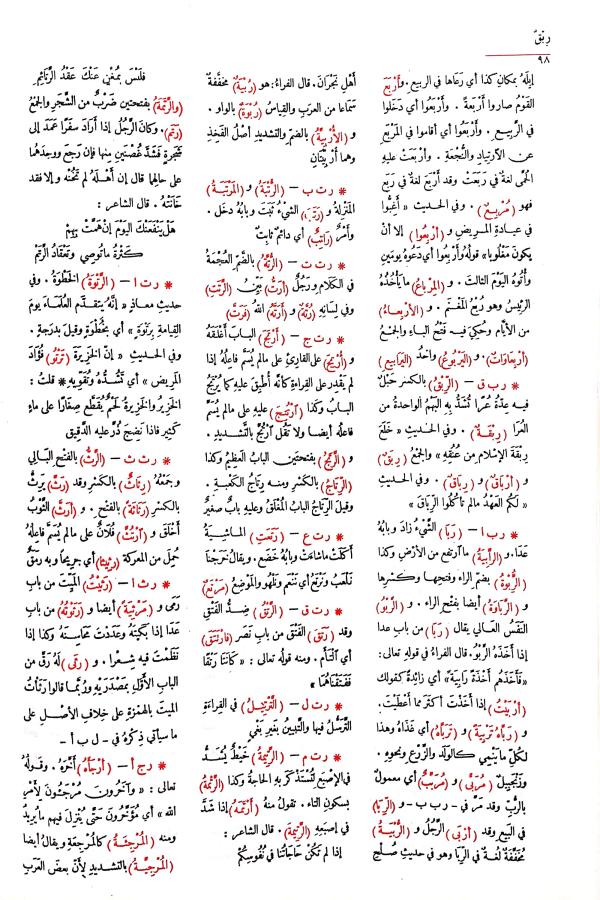 ربق
٩٨
إبِلَهُ بمكانِ كذا أي رَعاها في الربيع. و(أَرْبَعَ)
القَوْمُ صاروا أَرْبَعَةً . وأَرْبَعُوا أي دَخَلُوا
في الرَّبيع . وأَرْبَعُوا أي أقاموا في المَرْبَعِ
عن الاَّرْتِيادِ والنُّجْعَةِ . وأَرْبَعَتْ عليهِ
الحُمَّى لغةٌ في رَبَعَتْ وقد أُرْبِعَ لغة في رُبِعَ
فهو (مُرْبِعٌ) . وفي الحديث « أَغِبُّوا
في عيادةِ المريضِ و(أَرْبِعُوا) إلا أنْ
يكونَ مَغْلُوبا» قولُهُ وأَرْبِعُوا أي دَعُوهُ يومَيْنِ
وأْتُوهُ اليَوْمَ الثالثَ . و(المِرْباعُ) ما يأخُذُهُ
الرئيسُ وهو رُبْعُ المَغْنَمِ . و(الأَرْبِعاءُ)
من الأيَّام وحُكِيَ فيه فَتْحُ الباءِ والجَمْعُ
(أربِعاوَاتٌ). و(اليَرْبُوعُ) واحدُ (اليَرَابِيعِ)
* رب ق – (الرِّبْقُ) بالكسر حَبْلٌ
فيه عِدَّةُ عُرًا تُشَدُّ به البَهْمُ الواحدةُ من
العُرَا (رِبْقَةٌ) . وفي الحديث « خَلَعَ
رِبْقَةَ الإسْلامِ من عُنُقِهِ » والجمْعُ (رِبَقٌ)
و(أَرْباقٌ) و(رِباقٌ) . وفي الحديث
« لَكُمُ العَهْدُ مالم تأكُلُوا الرِّبَاقَ »
* رب ا – (رَبَا) الشَّيْءُ زادَ وبابُهُ
عَدَا. و(الرَّابِيَةُ) ما ارتفع من الأرْضِ وكذا
(الرُّبْوَةُ) بضمِّ الراء وفتحها وكسْرِها
و(الرَّبَاوَةُ) أيضا بفتْح الراء . و(الرَّبْوُ)
النَّفَسُ العَالي يقال (رَبَا) من باب عدا
إذا أَخَذَهُ الرَّبْوُ. قال الفَرَّاءُ في قولهِ تعالى:
«فأَخَذَهُم أَخْذَةً رَابِيَةً» أي زائدةً كقولك
(أَرْبَيْتُ) إذا أَخَذْتَ أكثَرَ مما أَعْطَيْتَ.
و(رَبَّاهُ تَرْبِيَةً) و(تَرَبَّاهُ) أي غَذَّاهُ وهذا
لكُلِّ ما يَنْمِي كالوَلَدِ والزَّرْعِ ونحوِهِ.
وزَنْجَبِيلٌ (مُرَبًّى) و(مُرَبَّبٌ) أي معمولٌ
بالرُّبِّ وقد مَرَّ في – رب ب – و(الرِّبَا)
في البَيْعِ وقد (أَرْبَى) الرَّجُلُ و(الرُّبْيَةُ)
مُخَفَّفةً لُغَةٌ في الرِّبا وهو في حديثِ صُلْحِ
أهْلِ نَجْرانَ. قال الفراءُ: هو (رُبْيَةٌ) مخفَّفةٌ
سَمَاعا من العرَبِ والقِياسُ (رُبْوَةٌ) بالواو .
و(الأُرْبِيَّةُ) بالضمّ والتشديدِ أصْلُ الفَخِذِ
وهما أُرْبِيَّتَانِ
* رت ب – (الرُّتْبَةُ) و(المَرْتَبَةُ)
المَنْزِلةُ و(رَتَبَ) الشيْءُ ثَبَتَ وبابُهُ دخل .
وأَمْرٌ (رَاتِبٌ) أي دائمٌ ثابتٌ
* رت ت – (الرُّتَّةُ) بالضَّمّ العُجْمَةُ
في الكَلامِ ورَجُلٌ (أَرَتُّ) بَيِّنُ (الرَّتَتِ)
وفي لِسَانِهِ (رُتَّةٌ) و(أَرَتَّهُ) اللهُ (فَرَتَّ)
* رت ج – (أَرْتَجَ) البابَ أَغْلَقَهُ
و(أُرْتِجَ) على القارئ على مالم يُسَمَّ فاعِلُهُ إذا
لم يَقْدِر على القِراءَةِ كأنه أُطْبِقَ عليه كما يُرْتَجُ
البابُ وكذا (اَرْتُتِجَ) عليه على مالم يُسَمَّ
فاعلُه أيضا ولا تَقُل اَرْتُجَّ بالتَّشْديد .
و(الرَّتَجُ) بفتحتينِ البابُ العظيمُ وكذا
(الرِّتاجُ) بالكسْر ومنه رِتاجُ الكَعْبَةِ .
وقيلَ الرِّتاجُ البابُ المُغْلَقُ وعليهِ بابٌ صغيرٌ
* رت ع – (رَتَعَتِ) الماشِيَةُ
أَكَلَتْ ما شاءتْ وبابُهُ خَضَعَ . ويقالُ خَرَجْنا
نَلْعَبُ ونَرْتَعُ أي نَنْعَمُ ونَلْهُو والمَوْضِعُ (مَرْتَعٌ)
* رت ق – (الرَّتْقُ) ضِدُّ الفَتْقِ
وقد (رَتَقَ) الفَتْقَ من بابِ نَصَر (فارْتَتَقَ)
أي اَلتَأَمَ . ومنه قولُه تعالى : «كَانَتَا رَتْقًا
فَفَتَقْنَاهُمَا»
* رت ل – (التَّرتِيلُ) في القراءَةِ
التَّرَسُّلُ فيها والتَّبْيينُ بغيرِ بَغْيٍ
* رت م – (الرَّتِيمَةُ) خَيْطٌ يُشَدُّ
في الإصْبَعِ لتُسْتَذْكَرَ به الحاجةُ وكذا (الرَّتْمَةُ)
بسكون التاء. تقولُ منه (أَرْتَمَهُ) إذا شَدَّ
في إصبَعِهِ (الرَّتِيمَةَ). قال الشاعر :
إذا لم تَكُنْ حَاجَاتُنَا في نُفُوسِكُمْ
فَلَيْسَ بِمُغْنٍ عَنْكَ عَقْدُ الرَّتَائِمِ
و(الرَّتَمَةُ) بفتحتين ضَرْبٌ من الشَّجَرِ والجَمْعُ
(رَتَمٌ). وكانَ الرَّجُلُ إذا أرادَ سفَرًا عَمَدَ إلى
شَجَرةٍ فَشَدَّ غُصْنَيْنِ منها فإن رَجَعَ ووجدَهُما
على حالِها قال إن أَهْلَهُ لم تَخُنْهُ وإلا فقد
خانَتْهُ . قال الشاعر :
هَلْ يَنْفَعَنْكَ اليَوْمَ إنْ هَمَّتْ بِهِمْ
كَثْرَةُ ما تُوصِي وتَعْقَادُ الرَّتَمِ
* رت ا – (الرَّتْوَةُ) الخَطْوَةُ. وفي
حديثِ معاذٍ « إنَّهُ يَتَقَدَّمُ العُلَمَاءَ يومَ
القِيامَةِ بِرَتْوَةٍ » أي بخَطْوَةٍ وقيلَ بدَرجةٍ.
وفي الحديثِ « إنَّ الخَزِيرَةَ (تَرْتُو) فُؤَادَ
المَريض » أي تَشُدُّهُ وتُقَوِّيهِ * قلتُ :
الخَزِيرُ والخَزِيرَةُ لَحْمٌ يُقَطَّعُ صِغَارًا على ماءٍ
كثيرٍ فاذا نَضِجَ ذُرَّ عليه الدَّقِيقُ
* رث ث – (الرَّثُّ) بالفتْحِ البَالي
وجَمْعُهُ (رِثَاثٌ) بالكَسْرِ وقد (رَثَّ) يَرِثُّ
بالكسْر (رَثَاثَةً) بالفتح . و(أَرَثَّ) الثَّوْبُ
أَخْلَقَ و(اَرْتُثَّ) فُلَانٌ على مالم يُسَمَّ فاعِلُهُ
حُمِلَ من المَعْركة (رَثِيثًا) أي جريحًا وبه رَمَقٌ
* رث ا – (رَثَيْتُ) المَيِّتَ من باب
رَمَى و(مَرْثِيَةً) أيضا و(رَثَوْتُهُ) من باب
عَدَا إذا بَكَيْتَهُ وعَدَّدْتَ مَحَاسِنَهُ وكذا إذا
نَظَمْتَ فيه شِعْرا. و(رَثَى) لَهُ رَقَّ من
الباب الأوّلِ بمَصْدَرَيْهِ ورُبَّما قالوا رَثَأْتُ
الميتَ بالهمْزةِ على خلافِ الأصْل على
ما سيأتي ذِكْرُهُ في – ل ب أ –
* رج أ – (أَرْجَأَهُ) أَخَّرَهُ . وقولُهُ
تعالى : « وَآخَرُونَ مُرْجَئُونَ لِأَمْرِ
اللهِ » أي مُؤَخَّرُونَ حَتَّى يُنْزِلَ فيهم ما يُرِيدُ
ومنه (المُرْجِئَةُ) كالمُرْجِعَةِ ويقالُ أيضا
(المُرْجِيَّةُ) بالتشديدِ لِأَنَّ بعضَ العَرَبِ